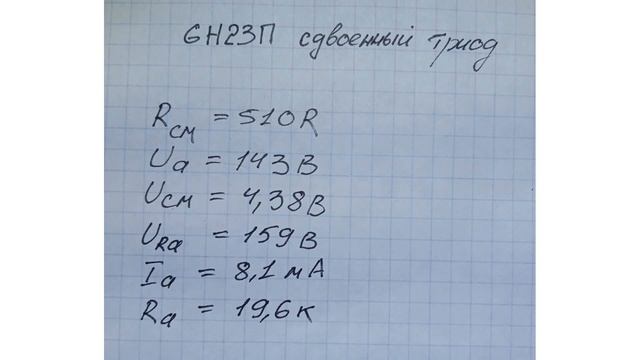 6Н23П сдвоенный триод
Rсм = 510R
Uа = 143В
Uсм = 4,38В
URa = 159В
Iа = 8,1мА
Rа = 19,6к